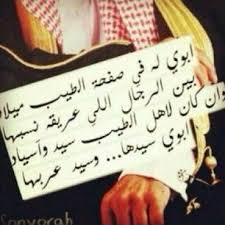 ابوي له في صفحة الطيب ميلاد
بين الرجال اللي عريقة نسبها
وان كان لاهل الطيب سيد واسياد
ابوي سيدها... وسيد عربها
Sonyorah